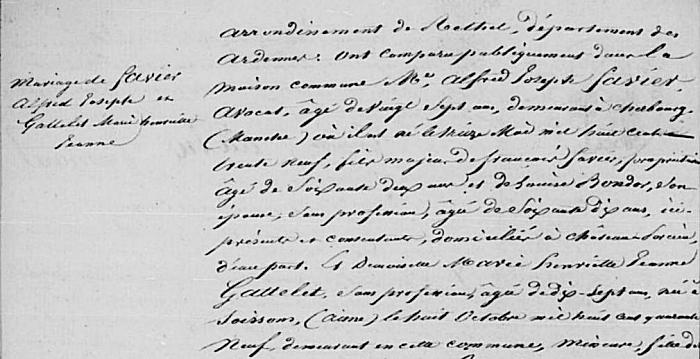 arrondissement de Rethel, département des
Ardennes : Ont comparu publiquement dans la
maison commune Mr. Alfred Joseph Favier,
Avocat, âgé de vingt sept ans, demeurant à Cherbourg
(Manche) où il est né le Mai mil huit cent
trente neuf, fils majeur de françois favier, propriétaire
âgé de Soixante deux ans et de Louise Bondos, Son
épouse, Sans profession, âgée de Soixante dix ans, ici
présents et consentants, domiciliés à Château Porcien,
d'une part. Et Demoiselle Marie henriette Jeanne
Gallelet, Sans profession, âgée de dix-sept ans, née à
Soissons, (aisne) le huit Octobre mil huit cent quarante
Neuf, demeurant en cette commune, Mineure, fille de
Mariage de favier
Alfred Joseph et
Gallelet Marie henriette
Jeanne